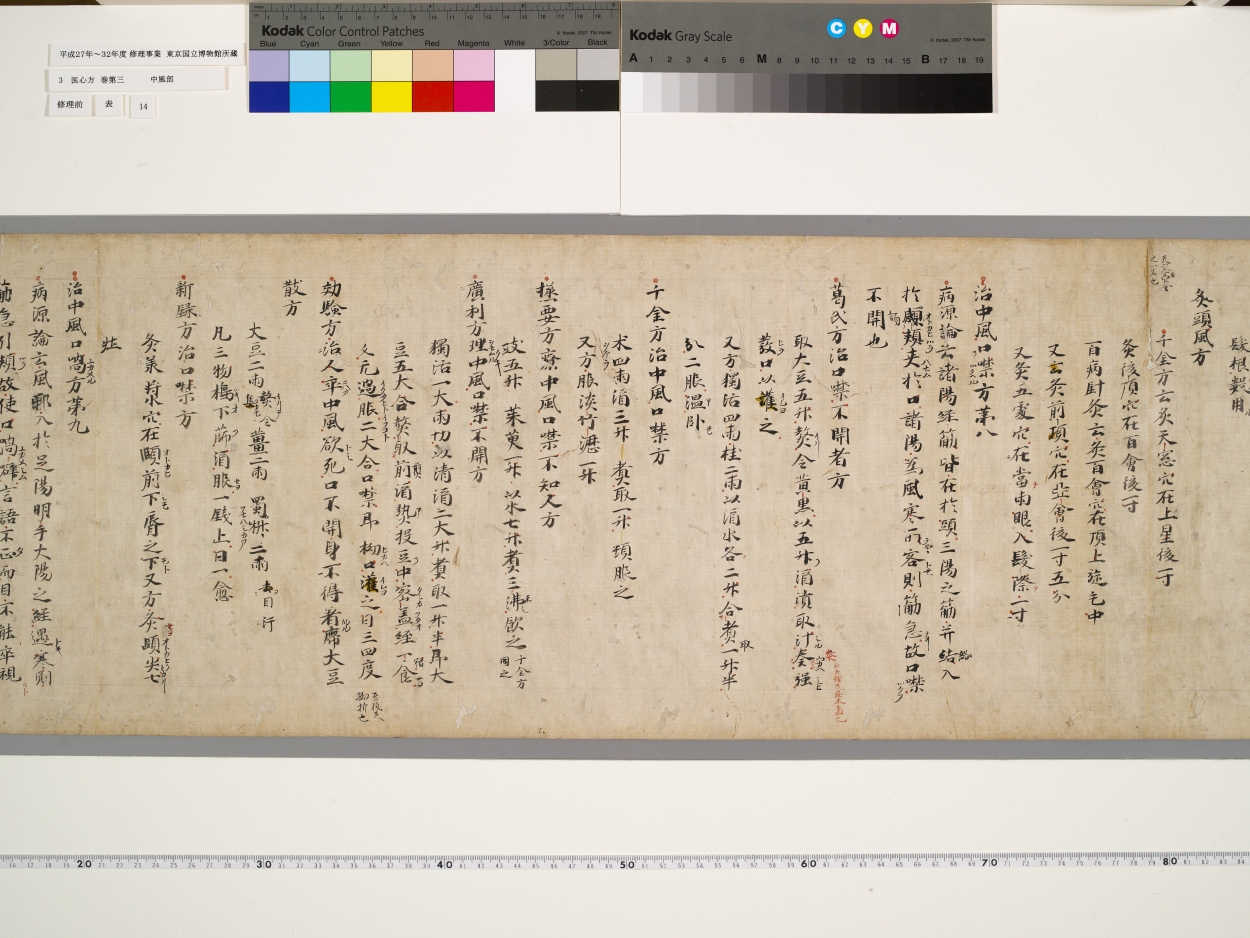 平成27年～32年度 修理事業 東京国立博物館所蔵
3 医心方 巻第三 中風部
修理前 表 14
Kodak Color Control Patches
© Kodak, 2007 TM: Kodak
Blue Cyan Green Yellow Red Magenta White 3/Color Black
Kodak Gray Scale
C Y M
© Kodak, 2007 TM: Kodak
A 1 2 3 4 5 6 M 8 9 10 11 12 13 14 15 B 17 18 19
灸頭風方
千金方云灸天窓穴在上星後一寸
灸後頂穴在百會後一寸
百病針灸云灸百會穴在頂上旋毛中
又云灸前頂穴在䪿會後一寸五分
又灸五處穴在當兩眼入髮際一寸
治中風口噤方第八
病源論云諸陽經筋皆在於頭三陽之筋并結入
於頷頰夾於口諸陽為風寒所客則筋急故口噤
不開也
葛氏方治口噤不開者方
取大豆五升熬令黃黑以五升酒漬取汁
發口以灌之
又方獨活四兩桂二兩以酒水各二升合煮取一升半
分二服溫卧
千金方治中風口噤方
术四兩酒三升煮取一升頓服之
又方服淡竹瀝一升
極要方療中風口噤不知人方
豉五升 茱萸一升 以水七升煮三沸飲之 千金方同之
廣利方理中風口噤不開方
獨活一大兩切以清酒二大升煮取一升半即大
豆五大合熬取前酒熱投豆中密蓋經一食
久先溫服二大合口噤即拗口灌之日三四度
効驗方治人卒中風欲死口不開身不得著席大豆
散方
大豆二兩 薑二兩 蜀椒二兩 去目汗
凡三物擣下篩酒服一錢上日一愈
新錄方治口噤方
灸承漿穴在頤前下脣之下又方灸頭尖七
壯
治中風口喎方第九
病源論云風邪入於足陽明手大陽之經遇寒則
筋急引頰故使口喎僻言語不正而目不能平視
20 30 40 50 60 70 80